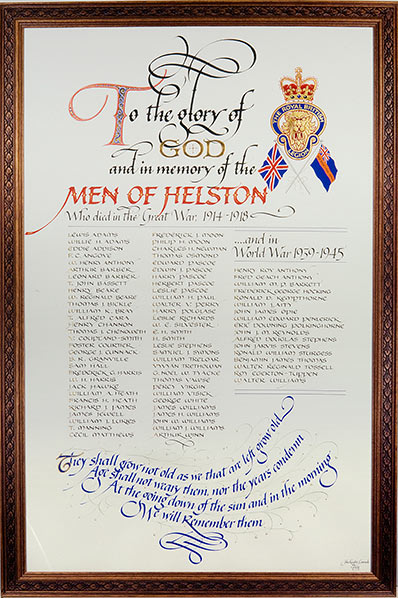 To the glory of
GOD
and in memory of the
MEN OF HELSTON
Who died in the Great War: 1914-1918
LEWIS ADAMS
WILLIE H. ADAMS
EDDIE ADDISON
F. C. ANGOVE
W. HENRY ANTHONY
ARTHUR BARBER
LEONARD BARBER
F. JOHN BASSETT
HENRY BEARE
W. REGINALD BEARE
THOMAS J. BICKLE
WILLIAM K. BRAY
T. ALFRED CARA
HENRY CHANNON
THOMAS J. CHENOWETH
V. COUPLAND-SMITH
FOSTER COURTIER
GEORGE J. CUNNACK
B. K. GRENVILLE
SAM HALL
FREDERICK G. HARRIS
W. H. HARRIS
JACK HAWKE
WILLIAM A. HEATH
FRANCIS H. HEATH
RICHARD J. JAMES
JAMES JEWELL
WILLIAM J. LUKES
T. MANNING
CECIL MATTHEWS
FREDERICK J. MOON
PHILIP H. MOON
CHARLES H. NEWMAN
THOMAS OSMOND
EDWARD PASCOE
EDWIN J. PASCOE
HARRY PASCOE
HERBERT PASCOE
LESLIE PASCOE
WILLIAM H. PAUL
WALTER V. PERSY
HARRY POLGLASE
LESLIE RICHARDS
W. E. SILVESTER
E. H. SMITH
H. SMITH
LESLIE STEPHENS
SAMUEL J. SIMONS
WILLIAM TRELOAR
VYVIAN TREWHOWAN
G. NOEL W. TYACKE
THOMAS VAWSE
PERCY VIRGIN
WILLIAM VISICK
GEORGE WHITE
JAMES WILLIAMS
JAMES H. WILLIAMS
JOHN W. WILLIAMS
WILLIAM J. WILLIAMS
ARTHUR WINN
....and in
World War 1939-1945
HENRY ROY ANTHONY
FRED GEACH ANTHONY
WILLIAM M. P. BARRETT
FREDERICK GEORGE HOSKING
RONALD D. KEMPTHORNE
WILLIAM LAITY
JOHN JAMES OPIE
WILLIAM EDWARD PENDERICK
ERIC DOWNING POLKINGHORNE
JOHN J. M. REYNOLDS
ALFRED DOUGLAS STEPHENS
JOHN JARVIS STEVENS
RONALD WILLIAM STURGESS
BENJAMIN JAMES THOMAS
WALTER REGINALD TOSSELL
ROY EGERTON-TUPPEN
WALTER WILLIAMS
THE ROYAL BRITISH
LEGION
They shall grow not old as we that are left grow old
Age shall not weary them, nor the years condemn
At the going down of the sun and in the morning
We will Remember them